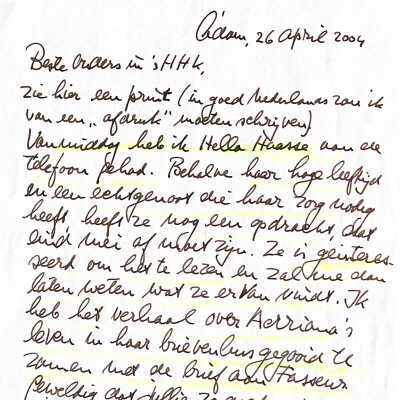 A'dam, 26 April 2004
Beste ouders in 's HHK,
Zie hier een print (in goed Nederlands zou ik
van een „afdruk" moeten schrijven)
Vanmiddag heb ik Hella Haasse aan de
telefoon gehad. Behalve haar hoge leeftijd
en een echtgenoot die haar zorg nodig
heeft heeft ze nog een opdracht, dat
eind mei af moet zijn. Ze is geïnteres-
seerd om het te lezen en zal me dan
laten weten wat ze ervan vindt. Ik
heb het verhaal over Adriana's
leven in haar brievenbus gegooid te
zamen met de brief aan Fasseur
Geweldig dat jullie